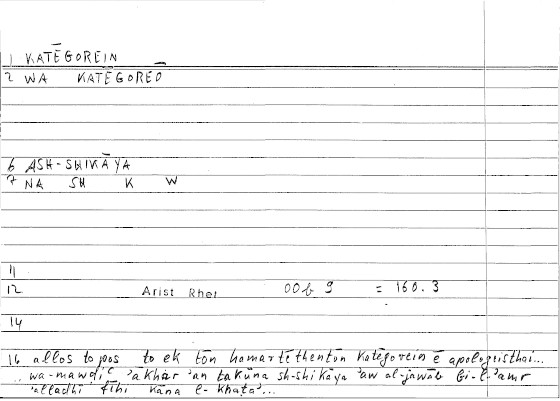 1 KATĒGOREIN
2 WA KATĒGOREŌ
6 ASH-SHIKĀYA
7 NA SH K W
11
12 Arist Rhet 00b 9 = 160.3
14
16 allos topos to ek tōn hamartēthentōn katēgorein ē apologeisthai...
wa-mawḍiʿ ʾākhar ʾan takūna sh-shikāya ʾaw al-jawāb bi-l-ʾamr
ʾalladhī fīhi kāna l-khaṭaʾ...